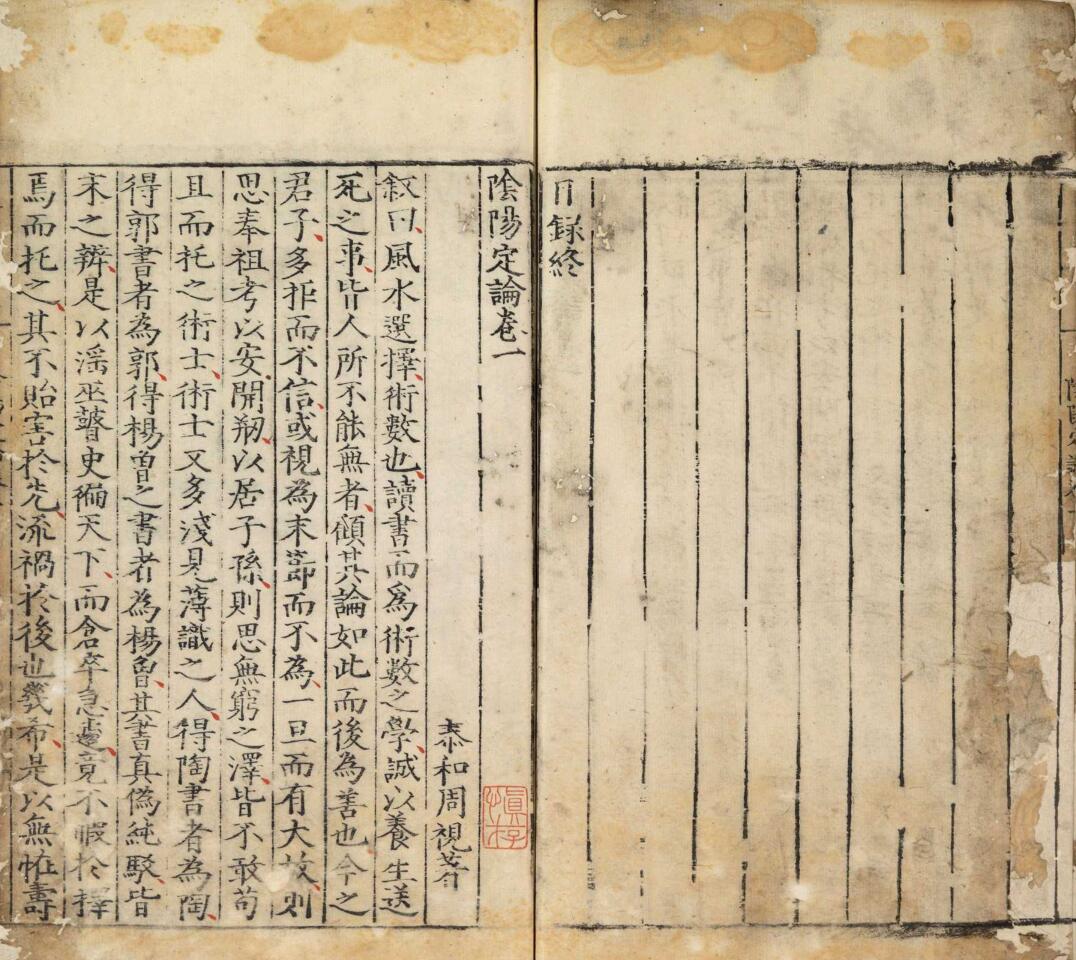 目錄終
陰陽定論卷一
泰和周視著
叙曰風水選擇術數也讀書而爲術數之學誠以養生送
死之事皆人所不能無者顧其論如此而後為善也今之
君子多拒而不信或視為末節而不為一旦而有大故則
思奉祖考以安開剏以居子孫則思無窮之澤皆不敢苟
且而托之術士術士又多淺見薄識之人得陶書者為陶
得郭書者為郭得楊曽之書者為楊魯其書真偽純駁皆
末之辨是以滛巫瞽史徧天下而倉卒急遽竟不暇於擇
焉而托之其不貽害於先流禍於後也幾希是以無恠壽